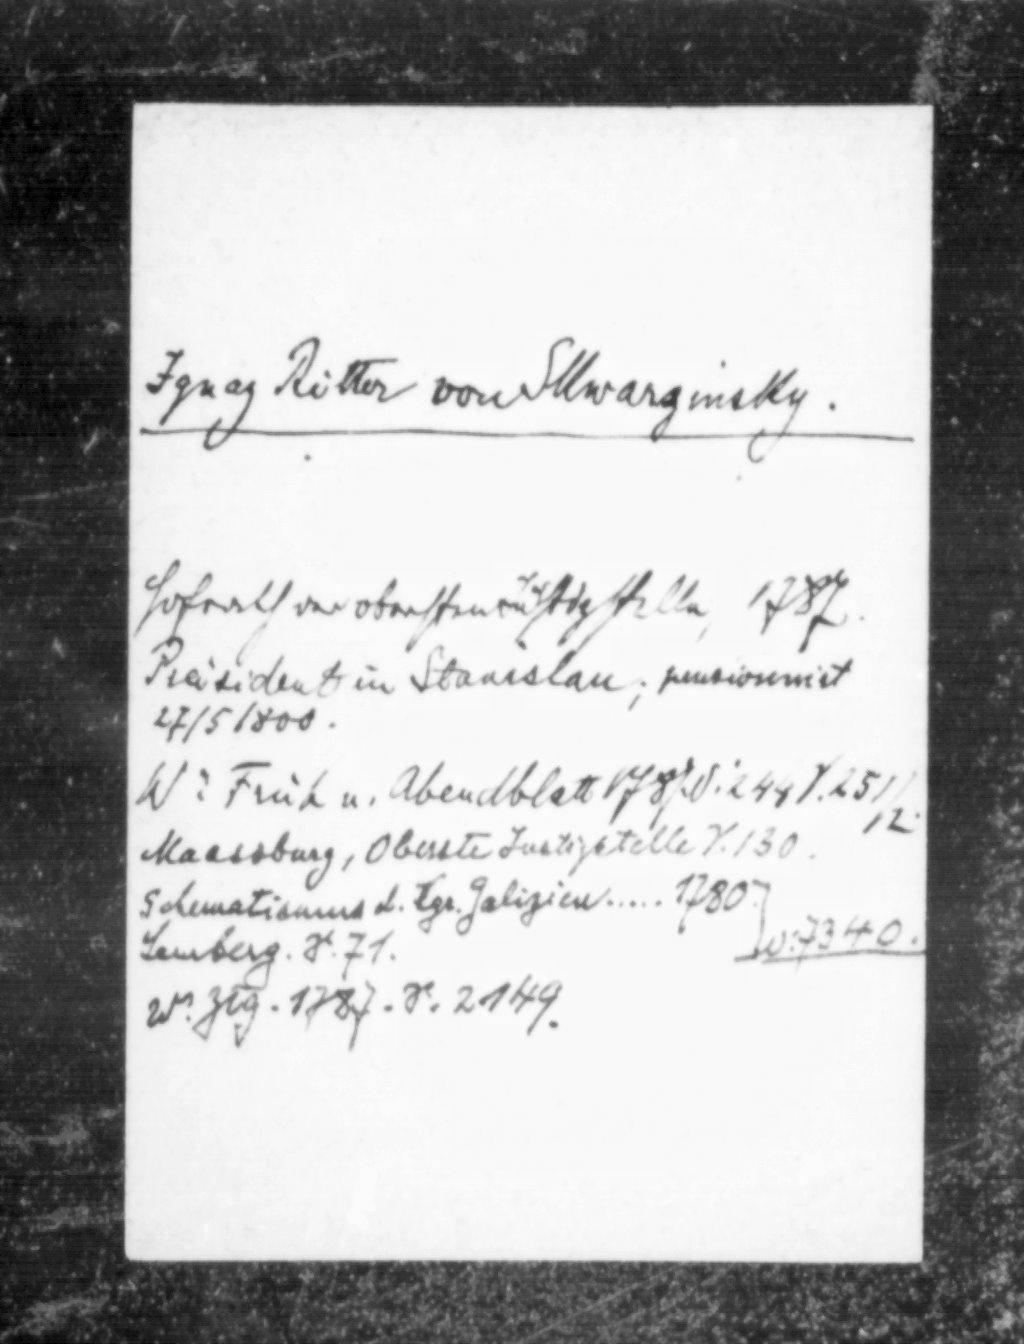 Ignaz Ritter von Skwarzinsky.
Hofrath der obersten Justizstelle, 1787.
Präsident in Stanislau; pensionirt
27/5 1800.
W: Früh u. Abendblatt 1787. N: 244 S. 251/
12.
Maassburg, Oberste Justizstelle S. 130.
Schematismus d. Kgr. Galizien..... 1780.
Lemberg. S. 71.
W: 7340.
W: Ztg. 1787. S. 2149.